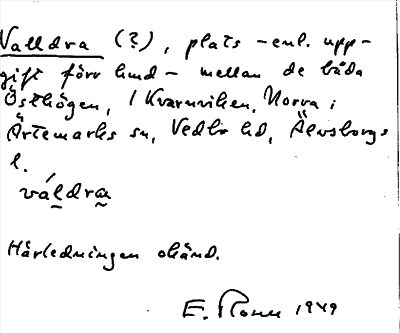 Valldra (?), plats – enl. upp-
gift förv hmd – mellan de båda
Östhögen, i Kvarnviken, Norra i
Ärtemarks sn, Vedbo hd, Älvsborgs
l.
váldra
Härledningen okänd.
E. 1949